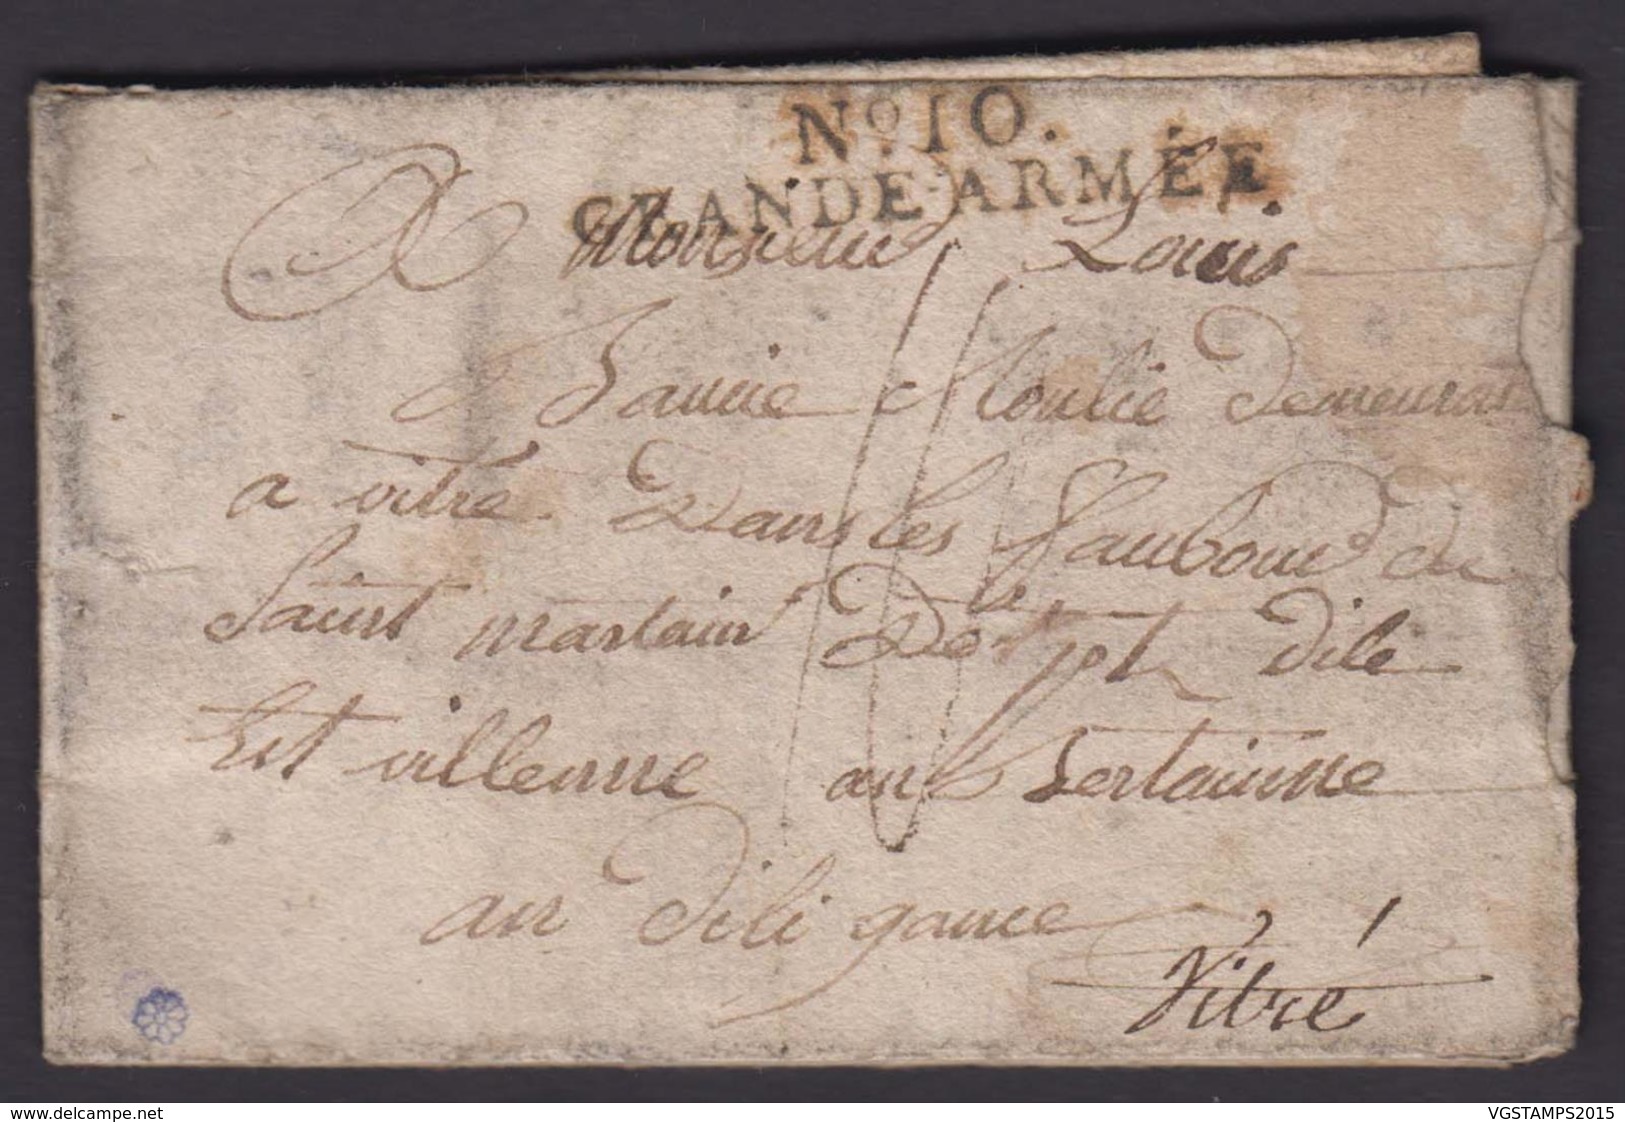 No. 10.
GRANDE-ARMÉE
A Monsieur Louis
Janvie Moulie Demeurant
a vitre Dans les faubourd de
Saint martain Dept dile
Et villenne an bertainne
an dili gance
Vitré
www.delcampe.net
VGSTAMPS2015